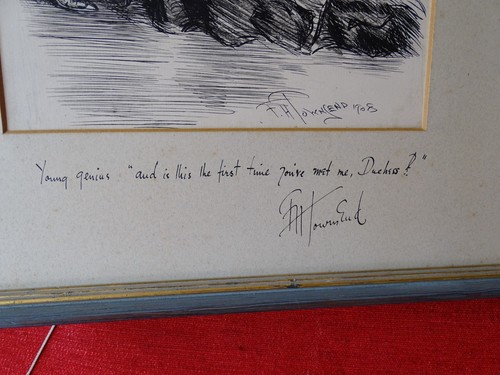 F. H. Townsend 1908
Young genius "and is this the first time you've met me, Duchess?"
FH Townsend